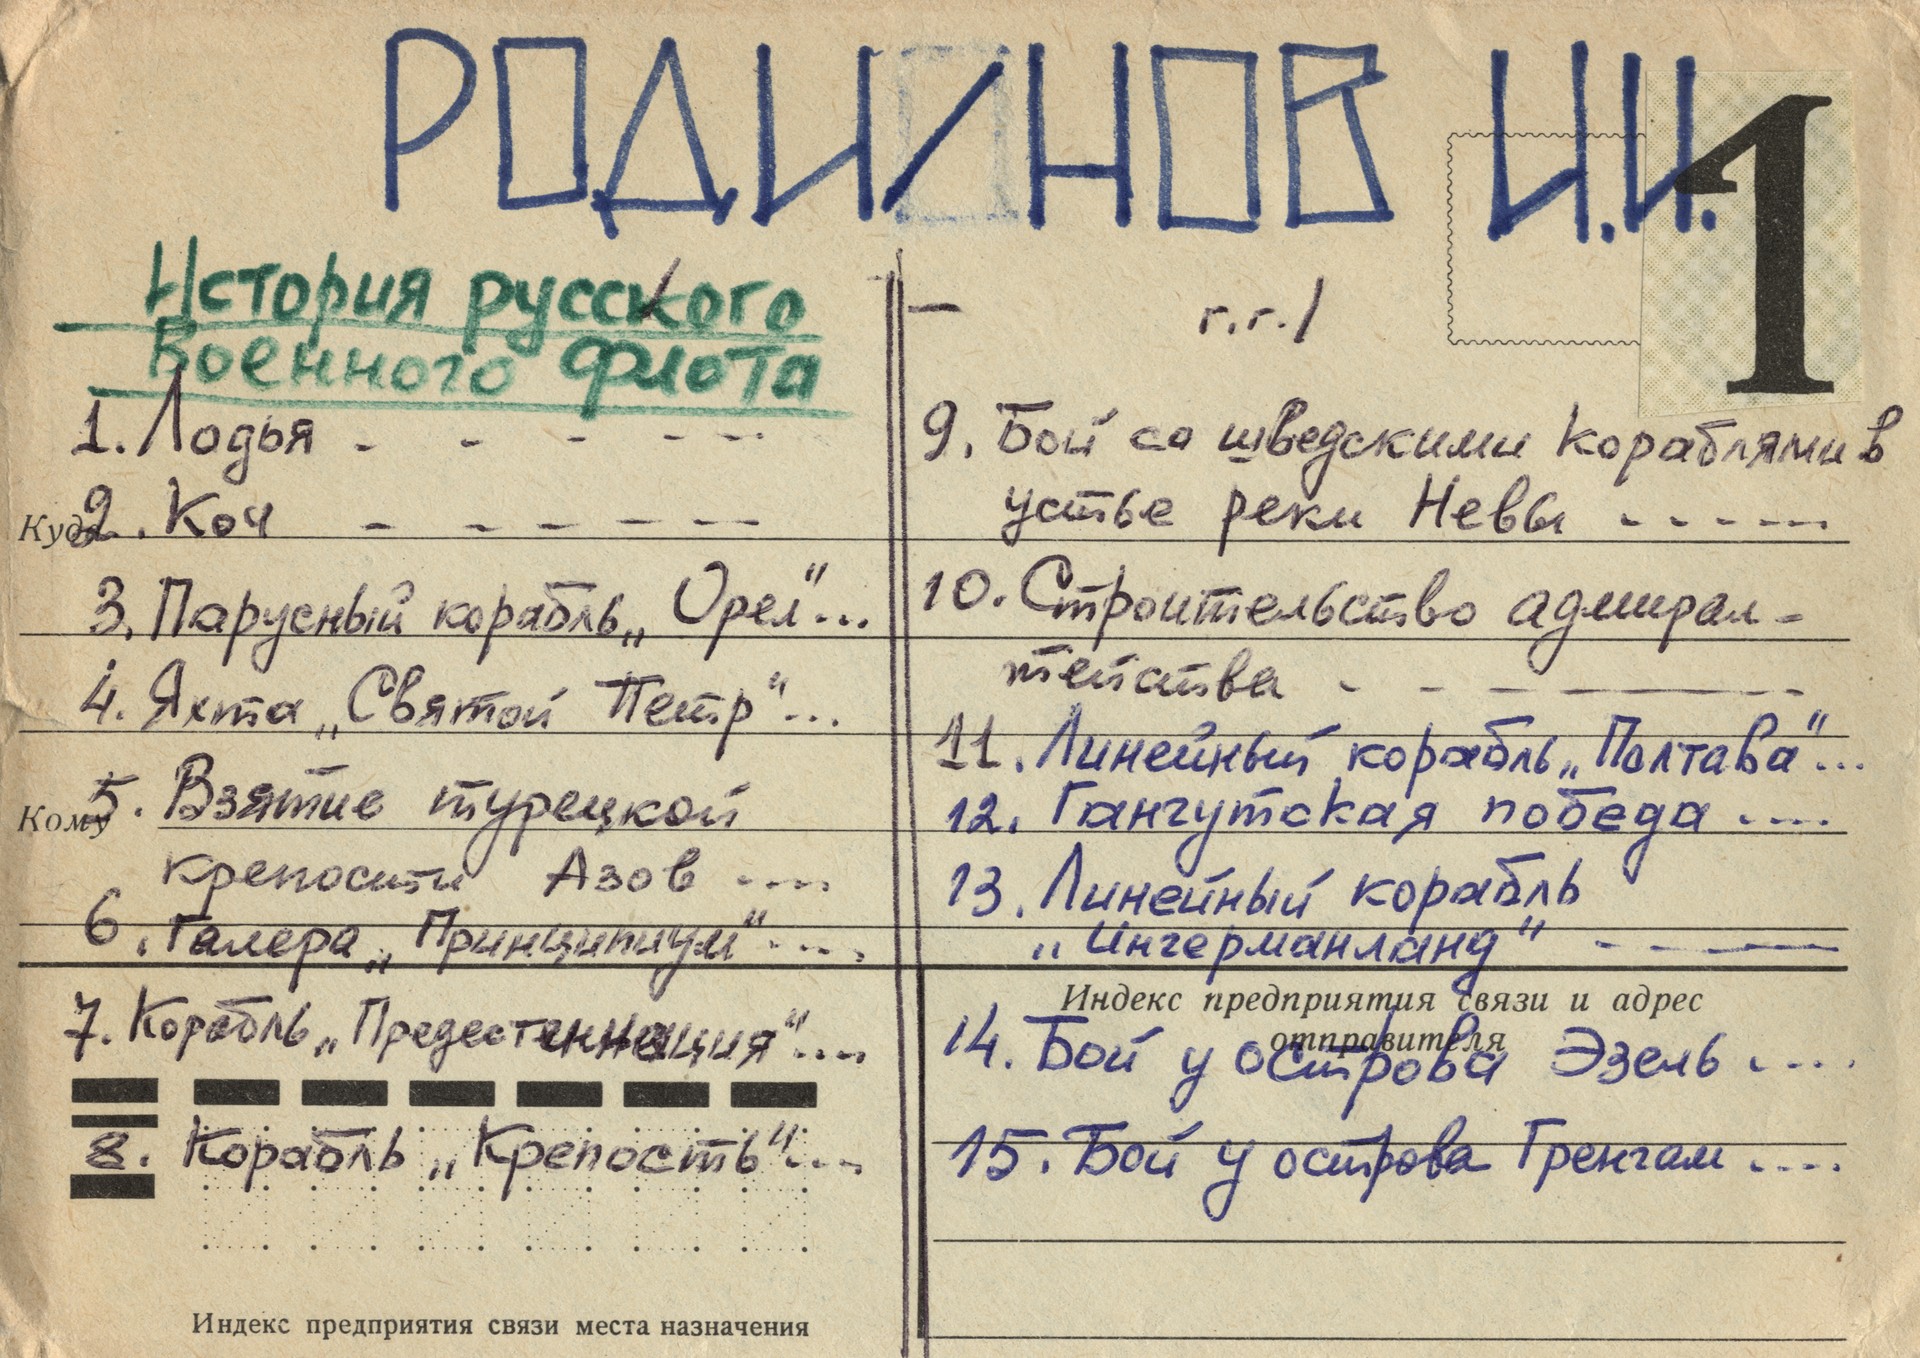 РОДИОНОВ И.И.
1
История русского
Военного флота
/ - г.г./
1. Лодья - - - - --
2. Коч - - - - - -
Куда
3. Парусный корабль „Орел"...
4. Яхта „Святой Петр"...
5. Взятие турецкой
Кому
крепости Азов ....
6. Галера „Принципиум"....
7. Корабль „Предестеннация"....
8. Корабль „Крепость"....
Индекс предприятия связи места назначения
9. Бой со шведскими кораблями в
устье реки Невы -----
10. Строительство адмирал-
тейства - - - - - -
11. Линейный корабль „Полтава"...
12. Гангутская победа ....
13. Линейный корабль
„Ингерманланд" - - - -
Индекс предприятия связи и адрес
отправителя
14. Бой у острова Эзель ....
15. Бой у острова Гренгам ....